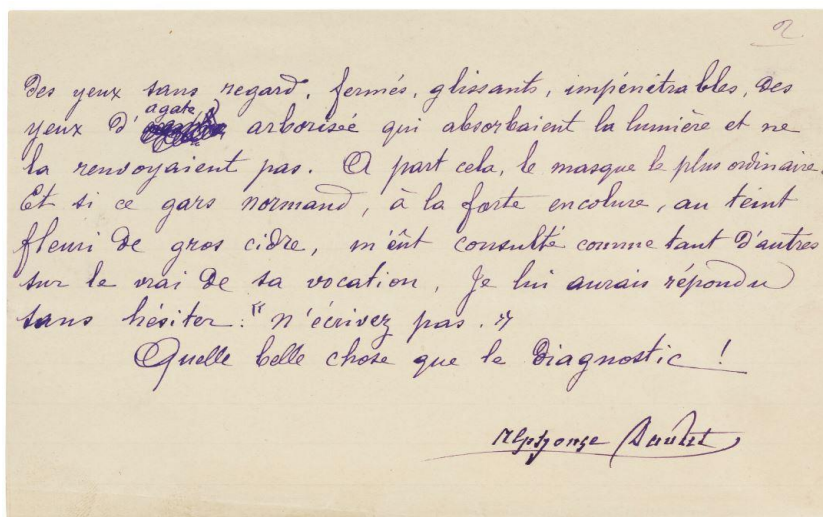 2
des yeux sans regard, fermés, glissants, impénétrables, des
agate
yeux d' arborisée qui absorbaient la lumière et ne
la renvoyaient pas. A part cela, le masque le plus ordinaire.
Et si ce gars normand, à la forte encolure, au teint
fleuri de gros cidre, m'eût consulté comme tant d'autres
sur le vrai de sa vocation, je lui aurais répondu
sans hésiter : "n'écrivez pas."
Quelle belle chose que le diagnostic !
Alphonse Daudet